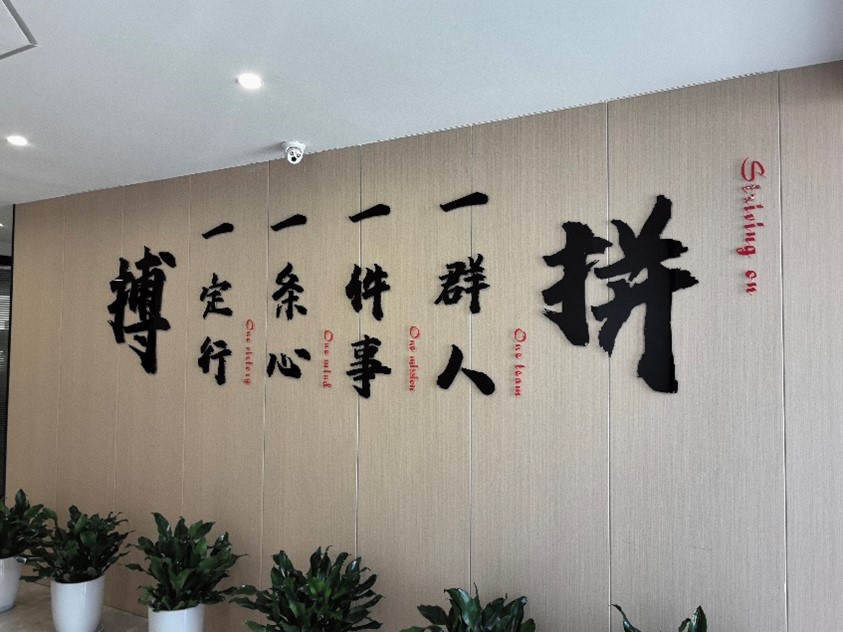 Striving on
拼
一群人
One team
一件事
One mission
一条心
One mind
一定行
One victory
搏